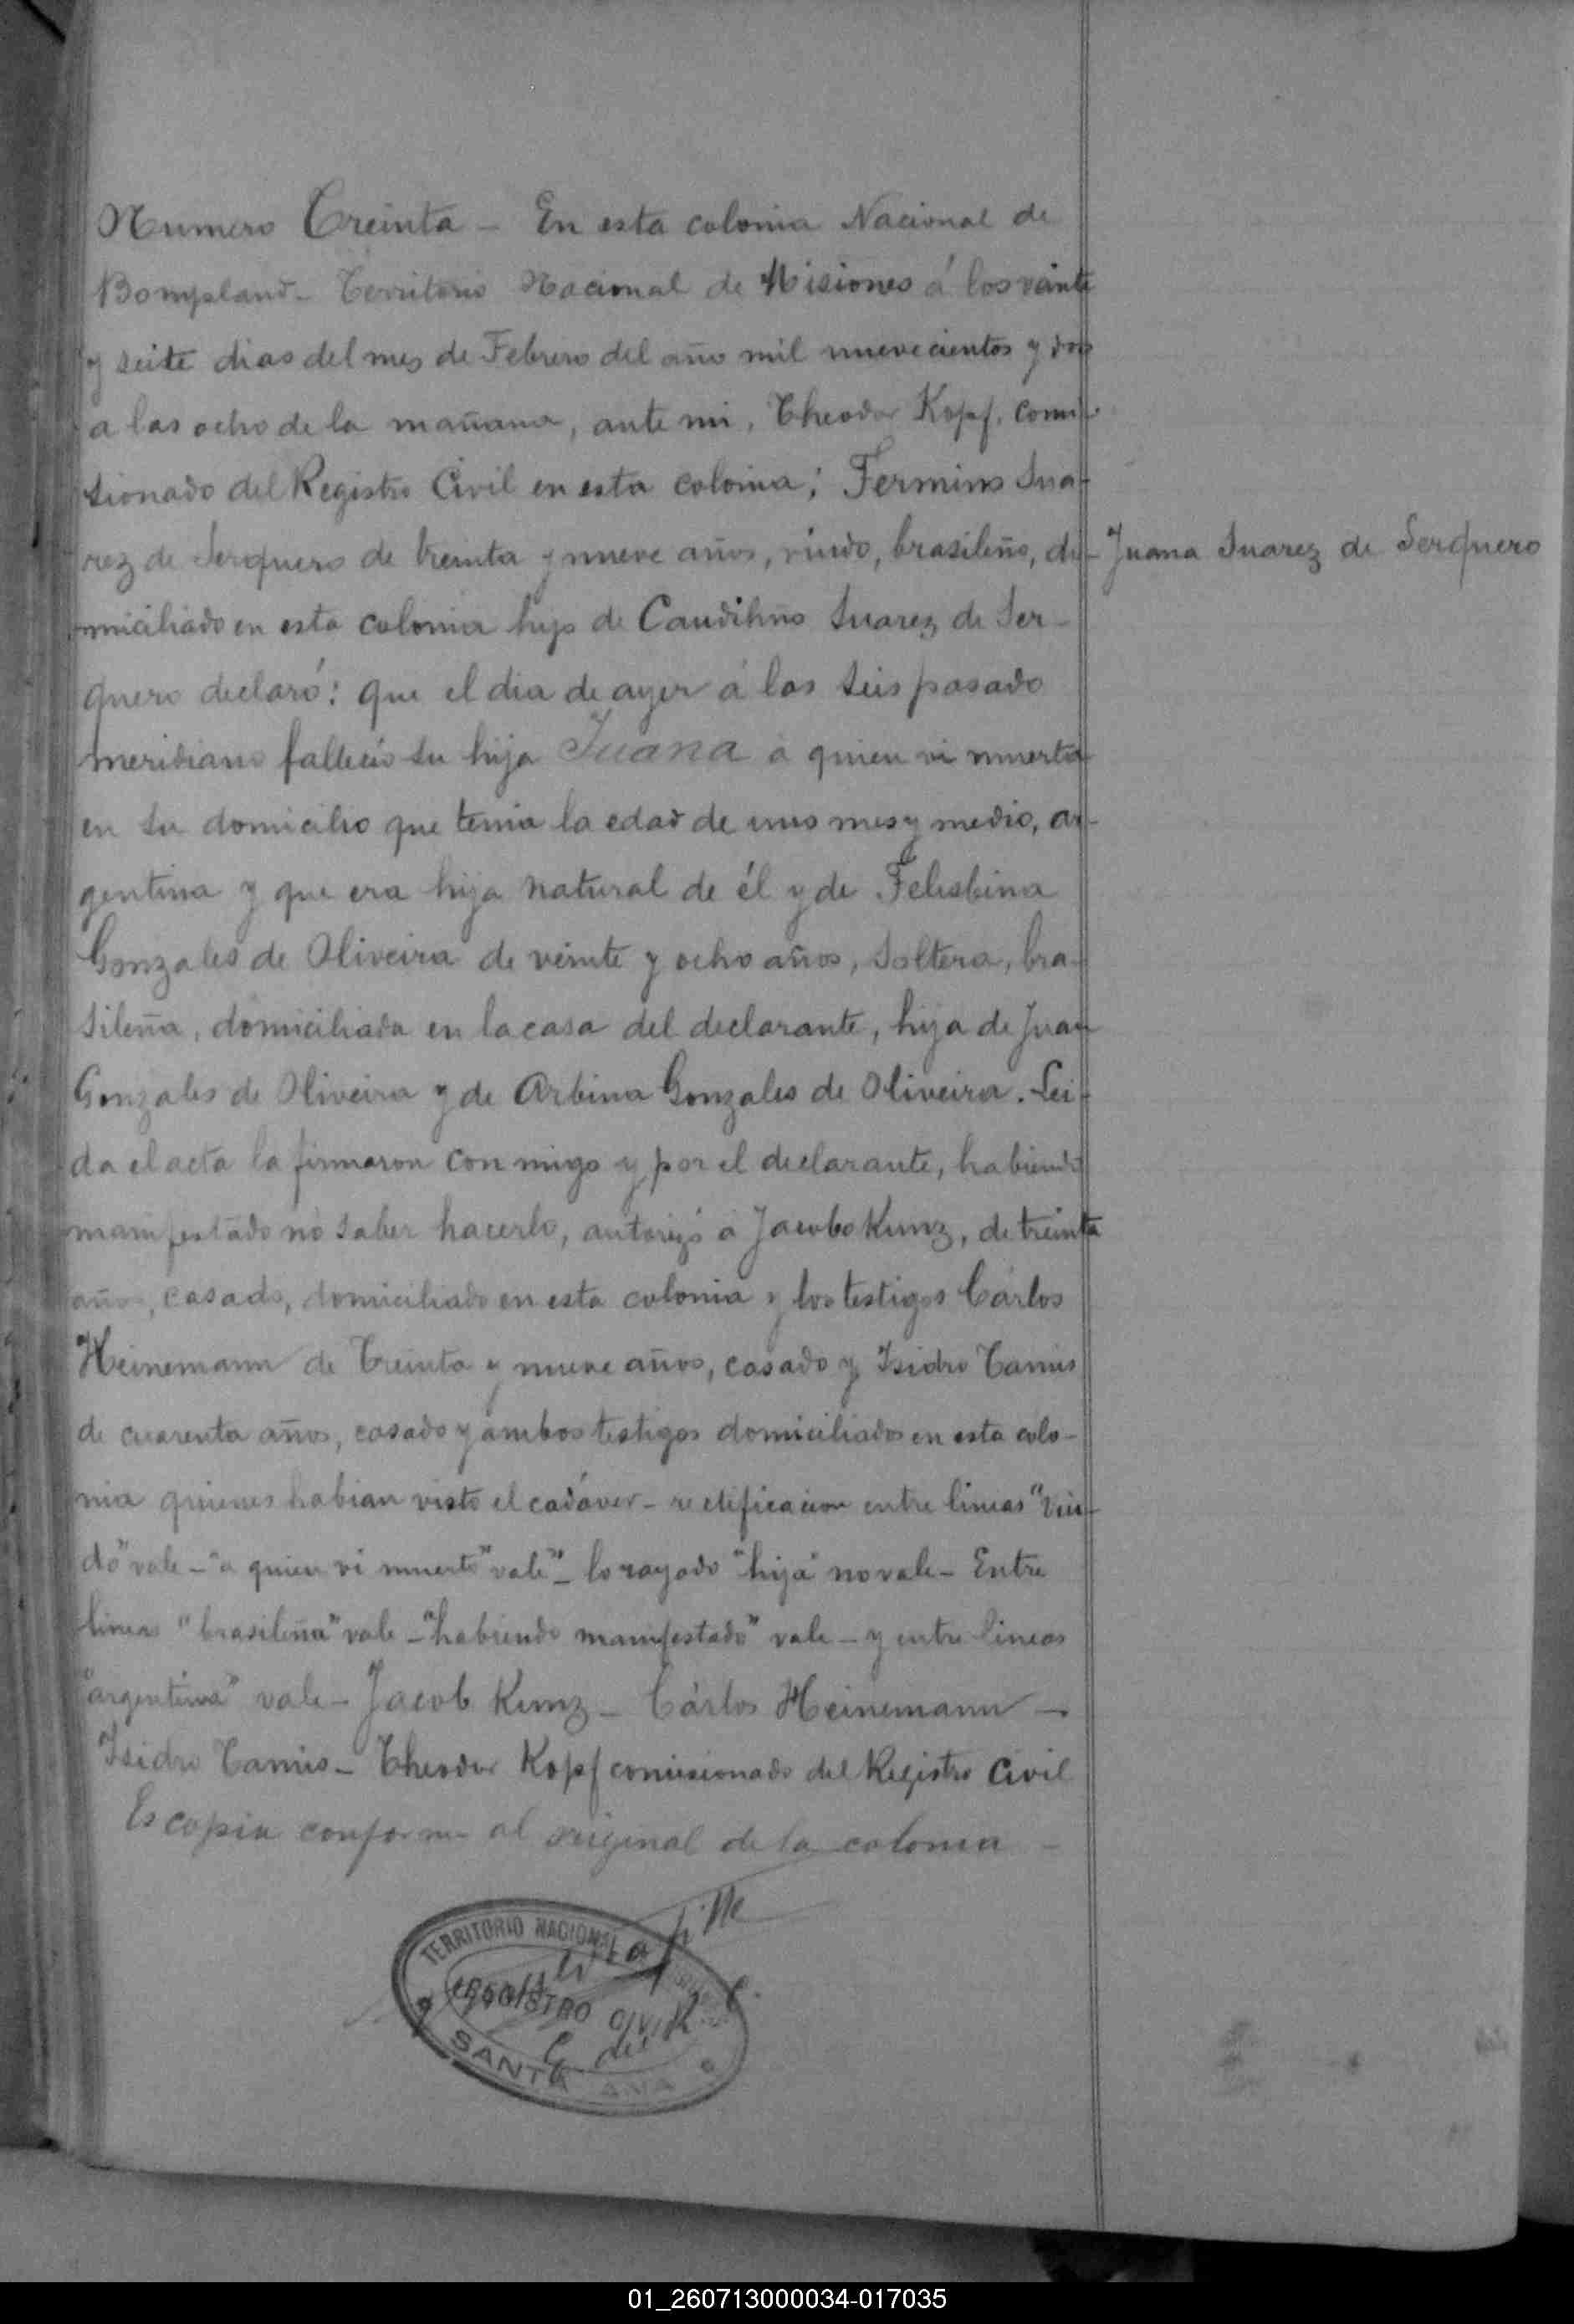 Numero Treinta - En esta colonia Nacional de
Bompland - Territorio Nacional de Misiones á los veinte
y seite dias del mes de Febrero del año mil nuevecientos y dos
a las ocho de la mañana, ante mi, Theodor Kopf, comi-
sionado del Registro Civil en esta colonia; Fermino Sua-
rez de Serquero de treinta y nueve años, viudo, brasileño, do-
Juana Suarez de Serquero
miciliado en esta colonia hijo de Caudilino Suarez de Ser-
quero declaró: que el dia de ayer á las seis pasado
meridiano falleció su hija Juana a quien vi muerta
en su domicilio que tenia la edad de uno mes y medio, ar-
gentina y que era hija natural de él y de Felisbina
Gonzales de Oliveira de veinte y ocho años, soltera, bra-
sileña, domiciliada en la casa del declarante, hija de Juan
Gonzales de Oliveira y de Arbina Gonzales de Oliveira. Lei-
da el acta la firmaron con migo y por el declarante, habiendo
manifestado no saber hacerlo, autorizó a Jacobo Kunz, de treinta
años, casado, domiciliado en esta colonia y los testigos Cárlos
Heinemann de treinta y nueve años, casado y Isidro Tamis
de cuarenta años, casado y ambos testigos domiciliados en esta colo-
nia quienes habian visto el cadáver - rectificacion entre lineas "viu-
do" vale - "a quien vi muerto" vale" - lo rayado "hija" no vale - Entre
lineas "brasileña" vale - "habiendo manifestado" vale - y entre lineas
"argentina" vale - Jacob Kunz - Cárlos Heinemann -
Isidro Tamis - Theodor Kopf comisionado del Registro Civil
Es copia conforme al original de la colonia -
TERRITORIO NACIONAL
REGISTRO CIVIL
E. del R. C.
SANTA ANA
01_260713000034-017035